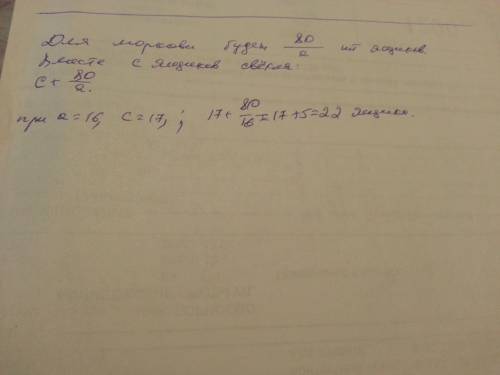 Для моркови будет 80/a шт ящиков.
Вместе с ящиков свёкла:
c + 80/a.
при a = 16, c = 17, ; 17 + 80/16 = 17 + 5 = 22 ящик.